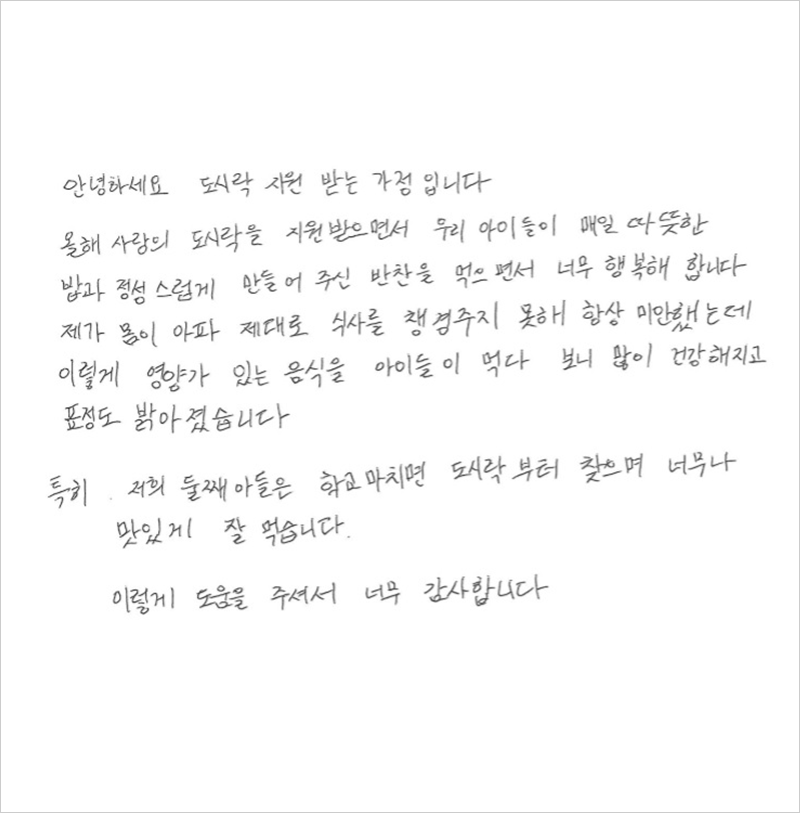 안녕하세요 도시락 지원 받는 가정입니다
올해 사랑의 도시락을 지원받으면서 우리 아이들이 매일 따뜻한
밥과 정성스럽게 만들어 주신 반찬을 먹으면서 너무 행복해 합니다
제가 몸이 아파 제대로 식사를 챙겨주지 못해 항상 미안했는데
이렇게 영양가 있는 음식을 아이들이 먹다 보니 많이 건강해지고
표정도 밝아졌습니다
특히 저희 둘째아들은 학교마치면 도시락부터 찾으며 너무나
맛있게 잘 먹습니다.
이렇게 도움을 주셔서 너무 감사합니다